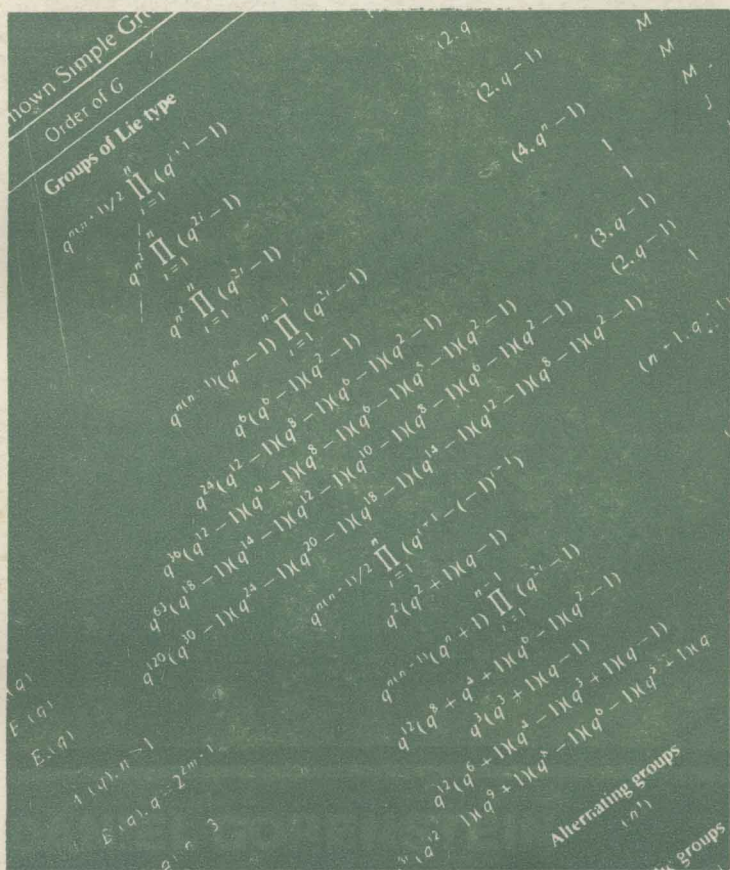 nown Simple Gro
Order of G
Groups of Lie type
q^{n(n+1)/2} ∏_{i=1}^{n} (q^{i+1} − 1)
q^{n²} ∏_{i=1}^{n} (q^{2i} − 1)
q^{n²} ∏_{i=1}^{n} (q^{2i} − 1)
q^{n(n−1)}(q^n − 1) ∏_{i=1}^{n−1} (q^{2i} − 1)
q^6(q^6 − 1)(q^2 − 1)
q^{24}(q^{12} − 1)(q^8 − 1)(q^6 − 1)(q^2 − 1)
q^{36}(q^{12} − 1)(q^9 − 1)(q^8 − 1)(q^6 − 1)(q^5 − 1)(q^2 − 1)
q^{63}(q^{18} − 1)(q^{14} − 1)(q^{12} − 1)(q^{10} − 1)(q^8 − 1)(q^6 − 1)(q^2 − 1)
q^{120}(q^{30} − 1)(q^{24} − 1)(q^{20} − 1)(q^{18} − 1)(q^{14} − 1)(q^{12} − 1)(q^8 − 1)(q^2 − 1)
q^{n(n+1)/2} ∏_{i=1}^{n} (q^{i+1} − (−1)^{i+1})
q^2(q^2 + 1)(q − 1)
q^{n(n−1)}(q^n + 1) ∏_{i=1}^{n−1} (q^{2i} − 1)
q^{12}(q^8 + q^4 + 1)(q^6 − 1)(q^2 − 1)
q^3(q^3 + 1)(q − 1)
q^{12}(q^6 + 1)(q^4 − 1)(q^3 + 1)(q − 1)
(q^{12} − 1)(q^9 + 1)(q^8 − 1)(q^6 − 1)(q^5 + 1)(q
Alternating groups
(n!)
groups
(2, q
(2, q − 1)
(4, q^n − 1)
1
1
(3, q − 1)
(2, q − 1)
1
(n + 1, q + 1)
M
M
M
J
(q)
E (q)
E (q)
(q), n > 1
(q), q = 2^{2m+1}
3
DANIEL GORENSTEIN